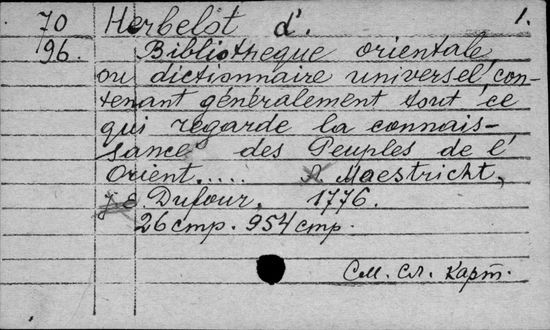 70 Herbelot d'. 1.
96. Bibliotheque orientale,
ou dictionnaire universel, con-
tenant généralement tout ce
qui regarde la connais-
sance des Peuples de l'
Orient..... Maestricht,
J. E. Dufour, 1776.
26 стр. 954 стр.
См. сл. карт.